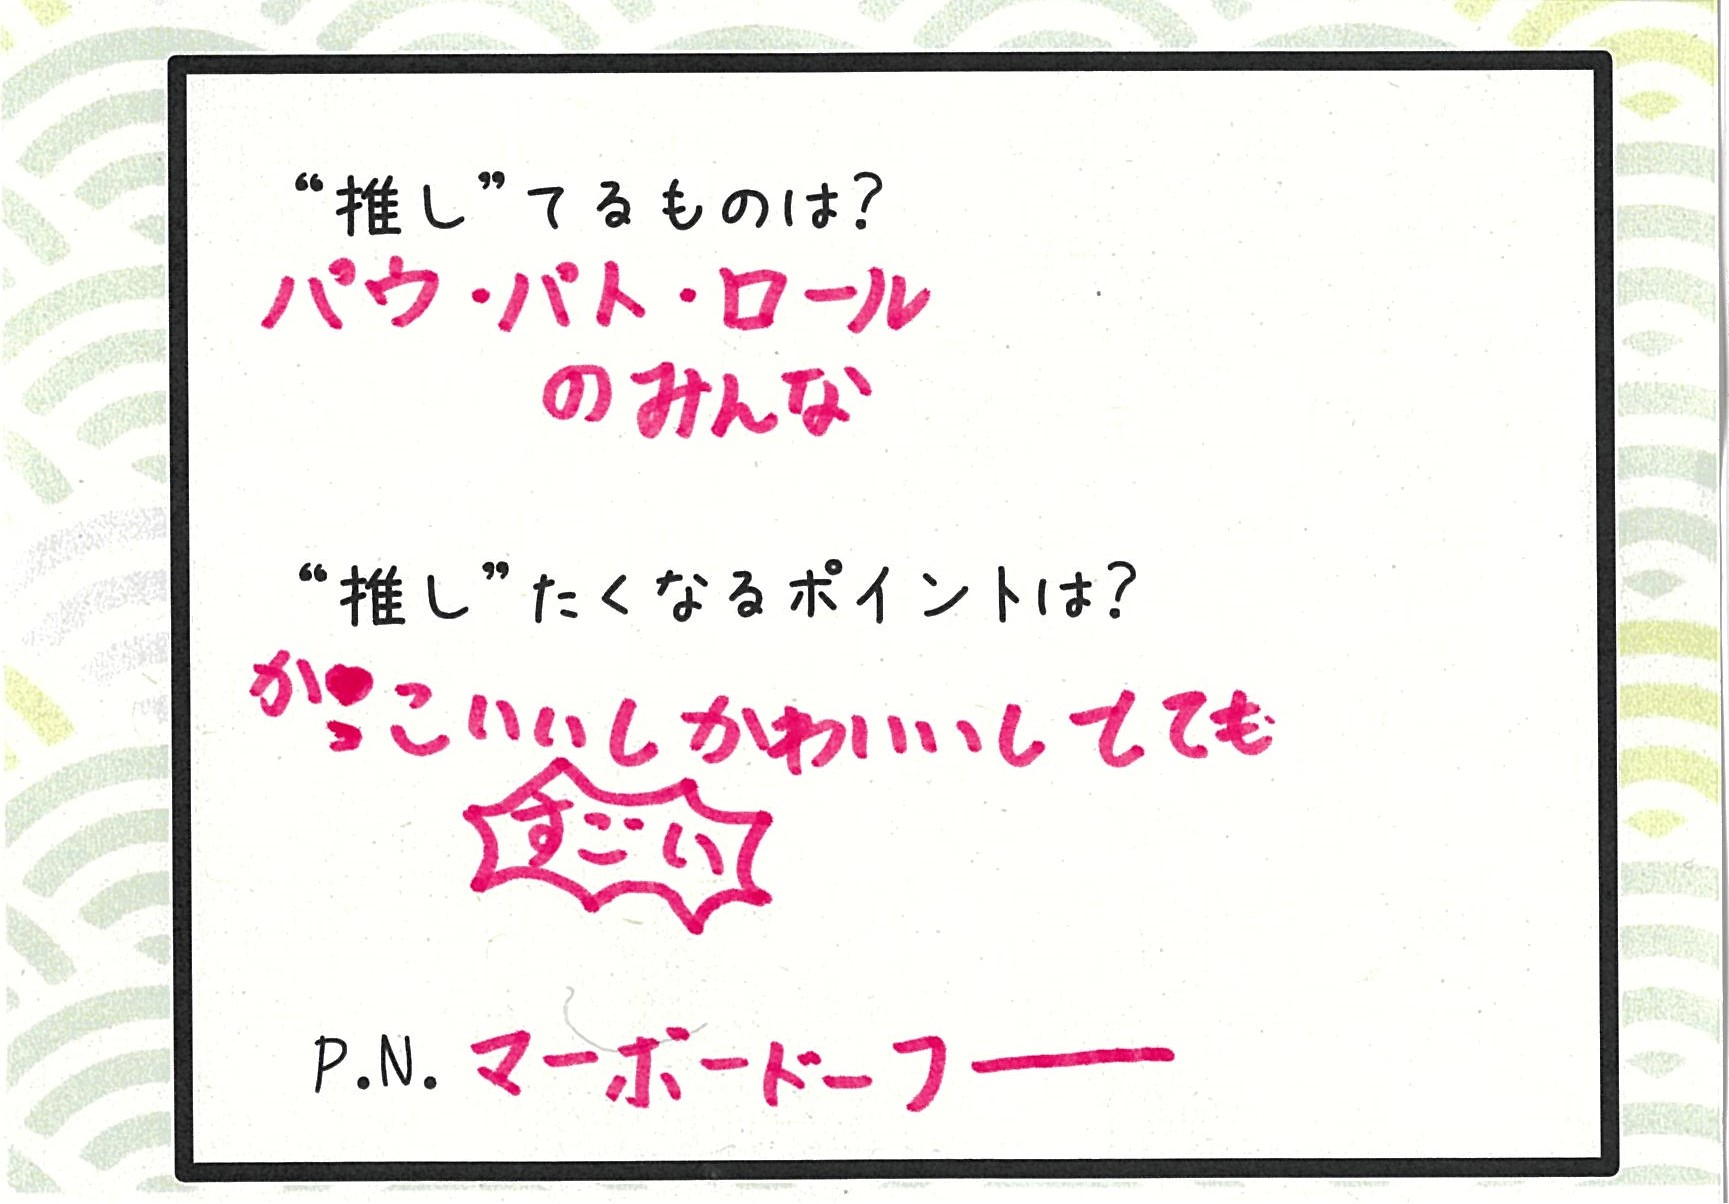 “推し”てるものは?
パウ・パト・ロール
のみんな
“推し”たくなるポイントは?
かっこいいしかわいいしとても
すごい
P.N. マーボードーフー